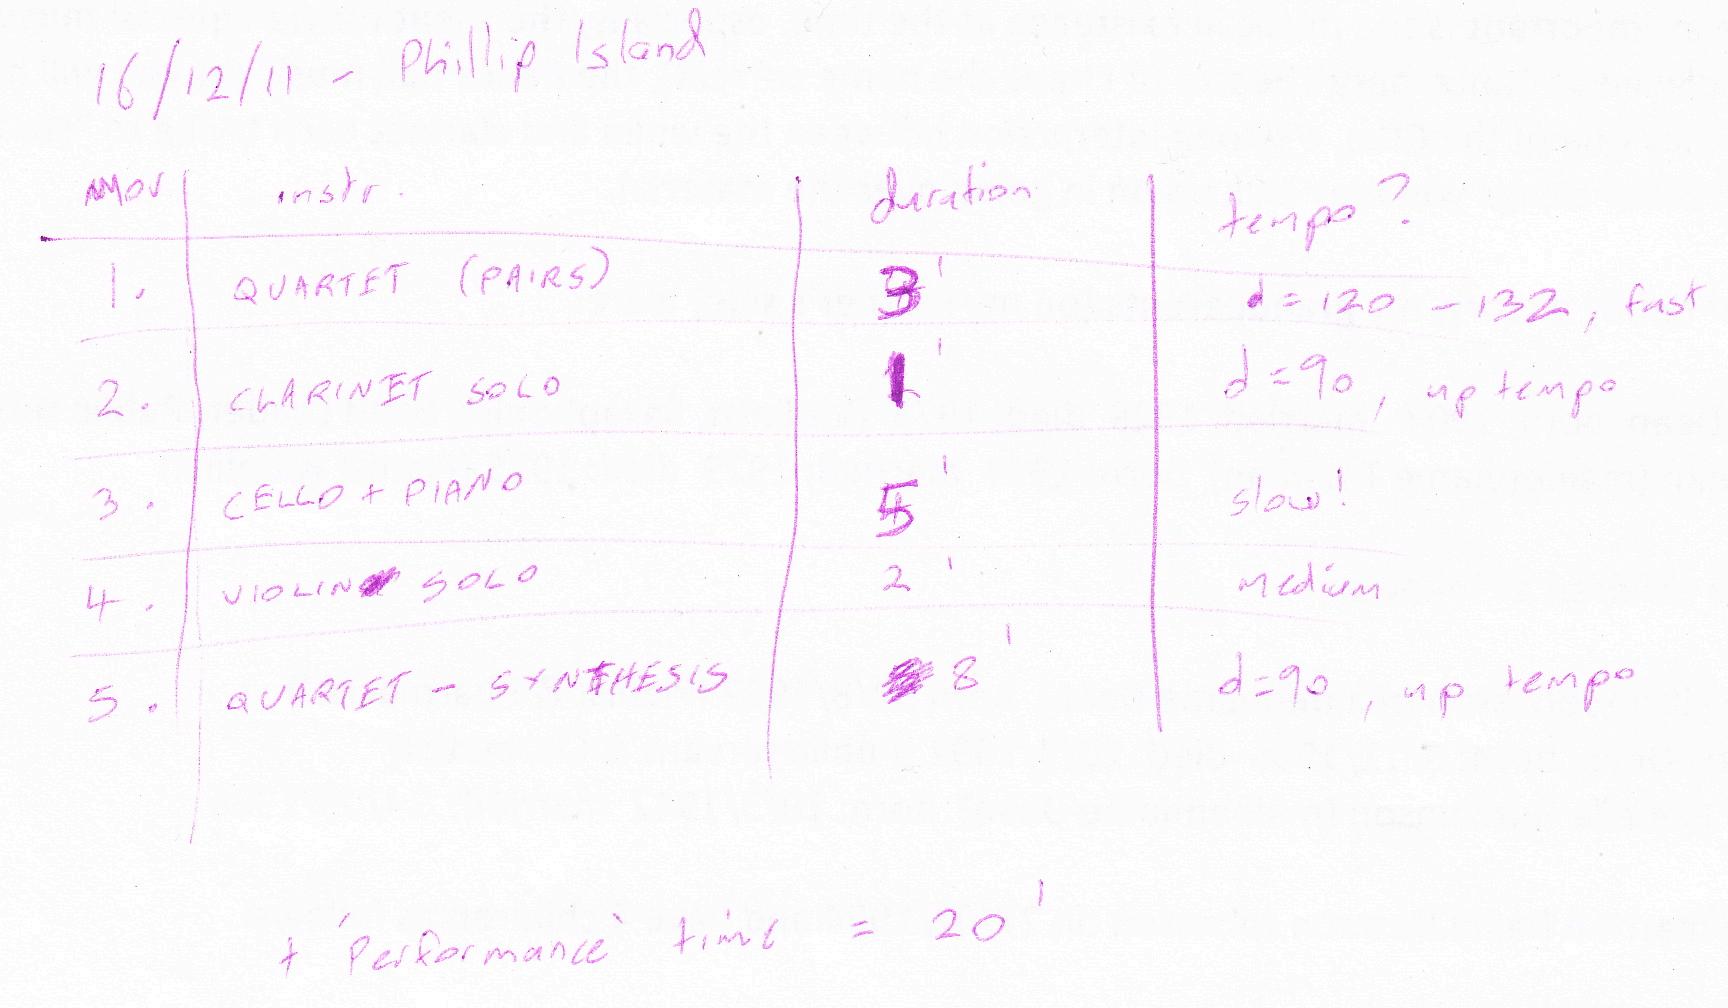 16/12/11 - Phillip Island
MOV instr. duration tempo?
1. QUARTET (PAIRS) 3' ♩=120 - 132, fast
2. CLARINET SOLO 1' ♩=90, up tempo
3. CELLO + PIANO 5' slow!
4. VIOLIN SOLO 2' medium
5. QUARTET - SYNTHESIS 8' ♩=90, up tempo
+ 'Performance' time = 20'